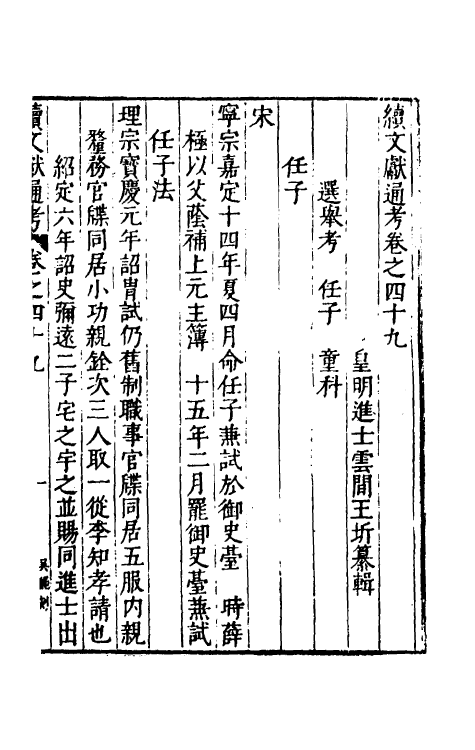 續文獻通考卷之四十九
皇明進士雲間王圻纂輯
選舉考 任子 童科
任子
宋
寧宗嘉定十四年夏四月命任子蕪試於御史臺 時薛
極以父蔭補上元主簿 十五年二月罷御史臺蕪試
任子法
理宗寶慶元年詔胄試仍舊制職事官牒同居五服内親
釐務官牒同居小功親銓次三人取一從李知孝請也
紹定六年詔史彌遠二子宅之宇之並賜同進士出
續文獻通考 卷之四十九 一